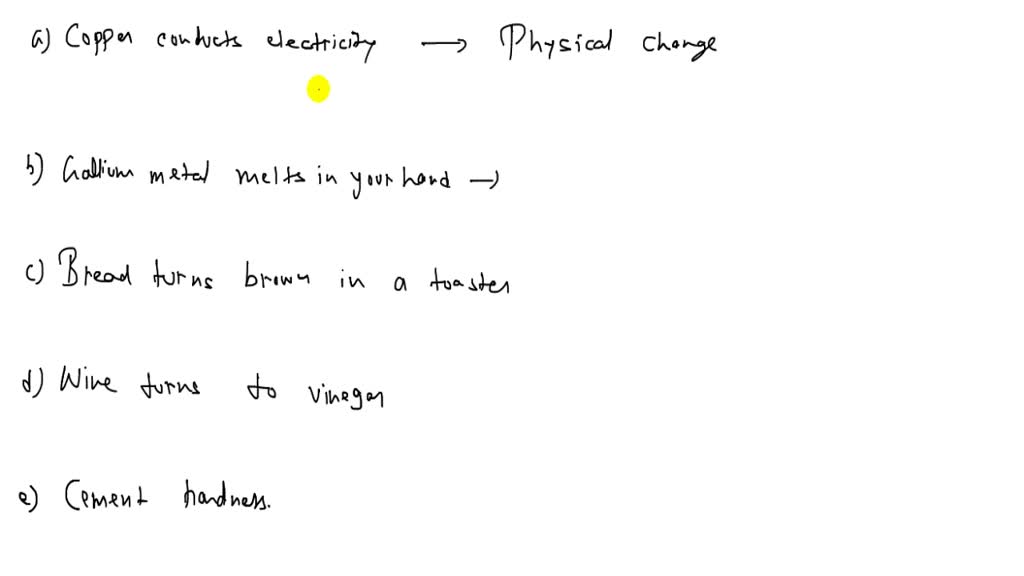 a) Copper conducts electricity → Physical change
b) Gallium metal melts in your hand →
c) Bread turns brown in a toaster
d) Wine turns to vinegar
e) Cement hardness.